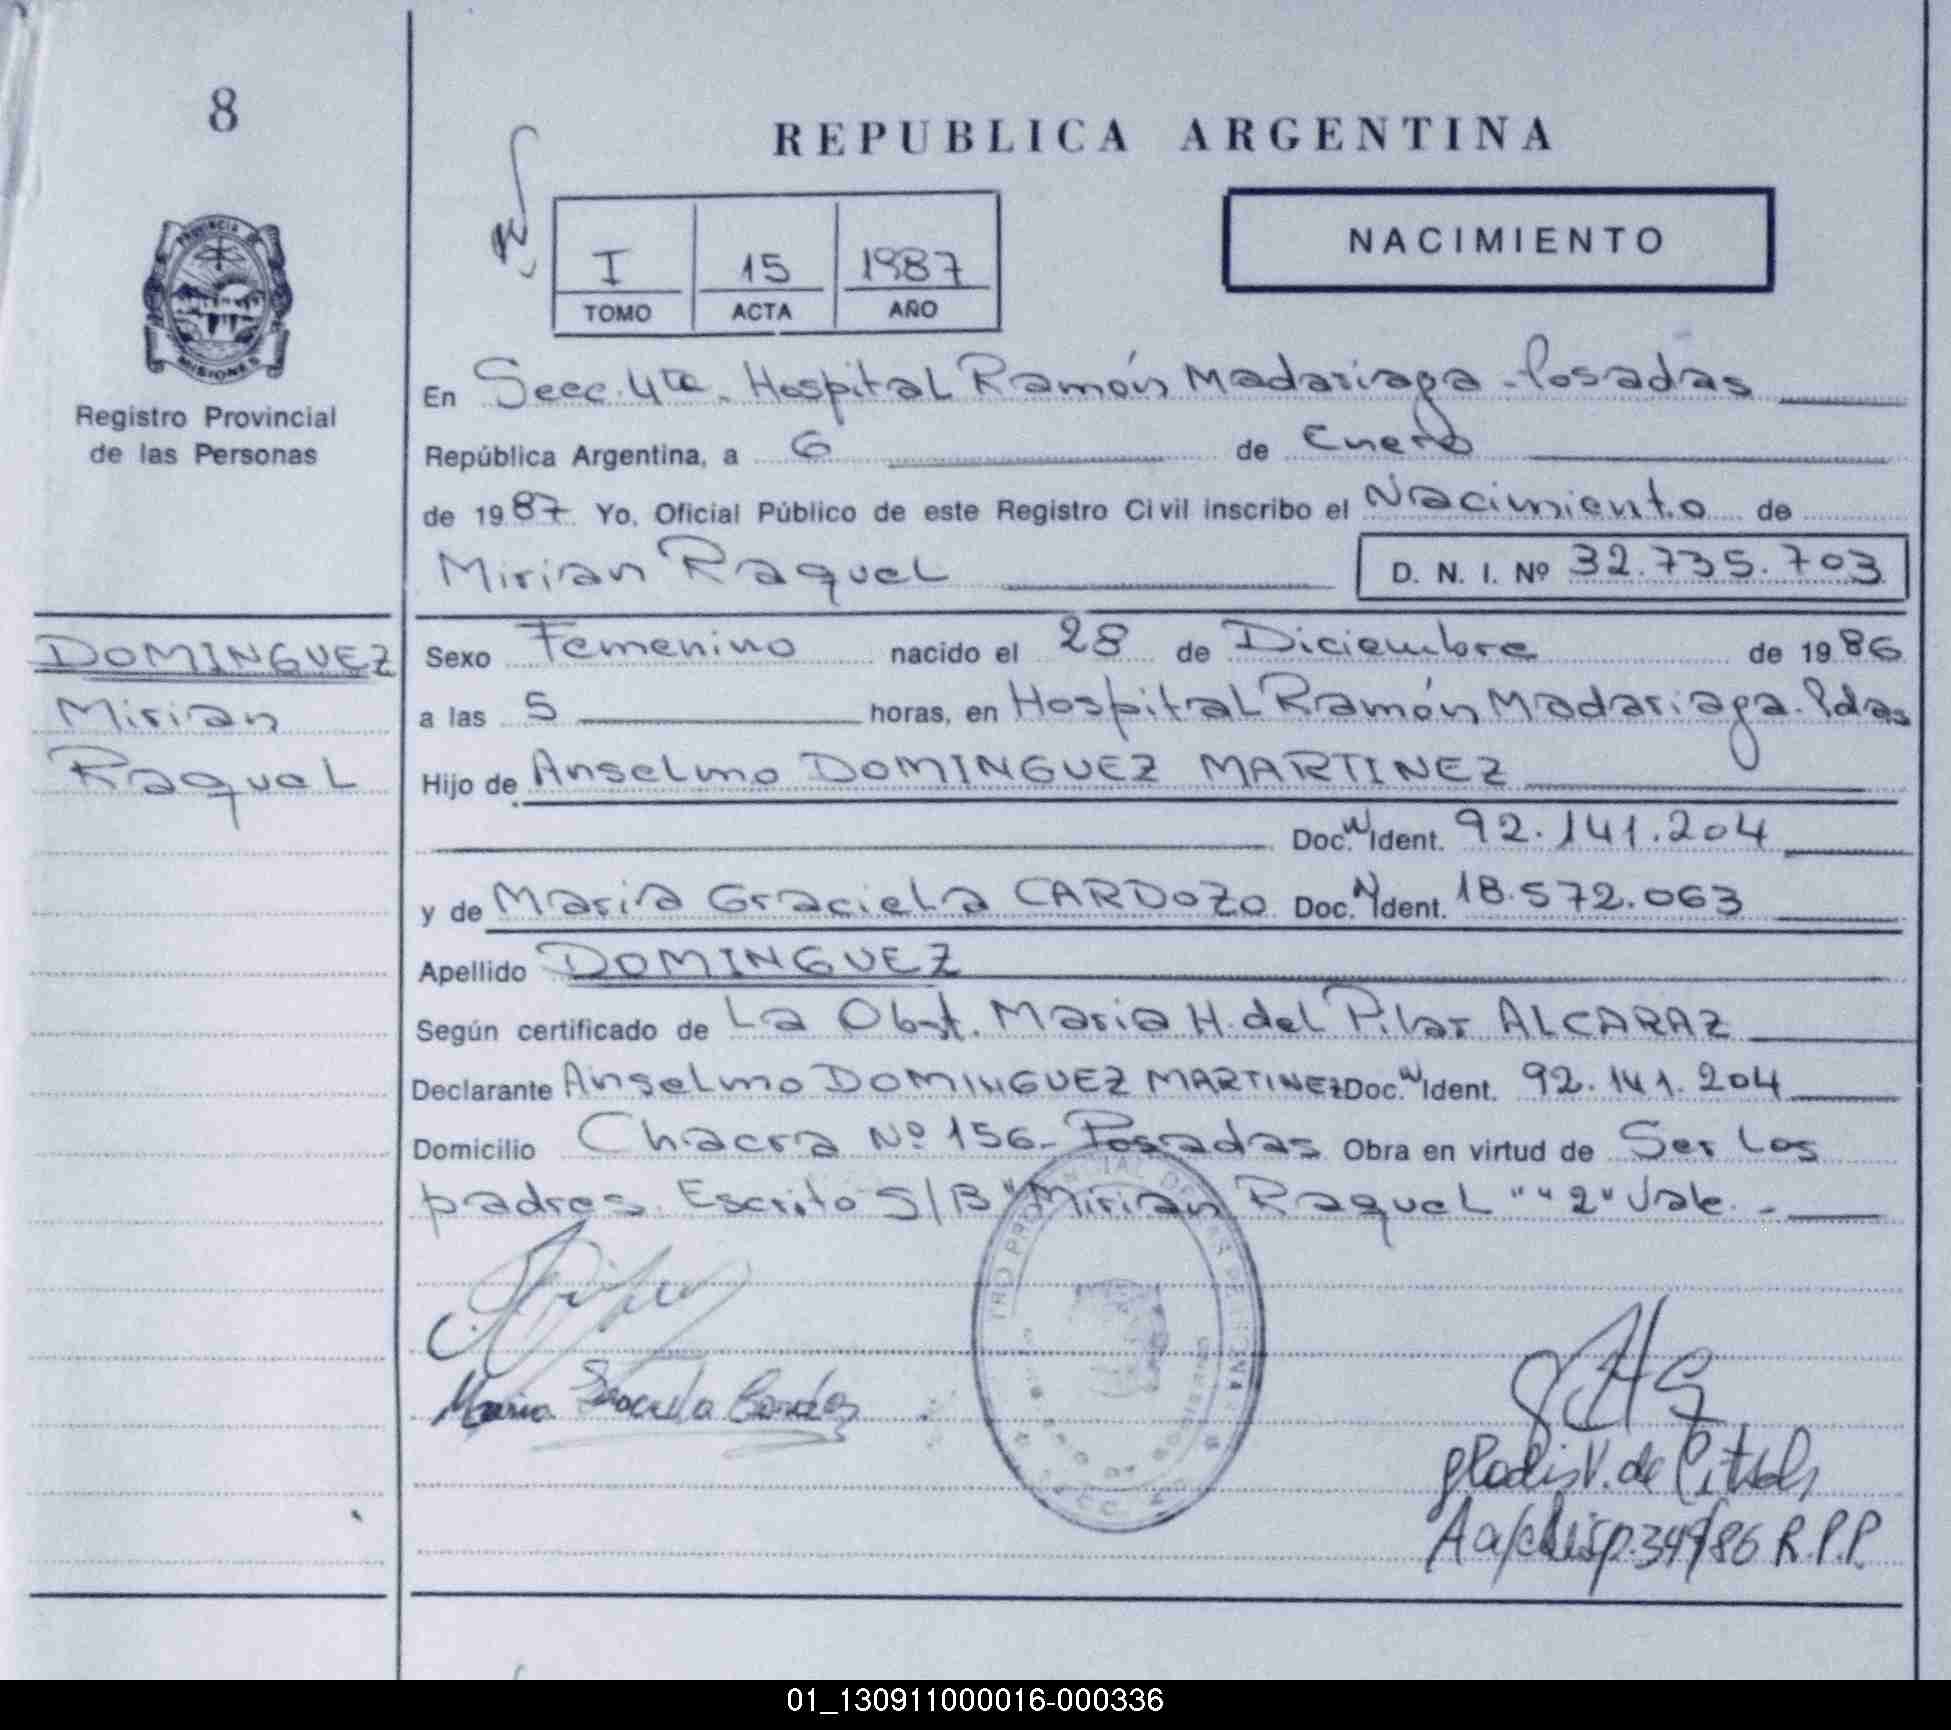 8
REPUBLICA ARGENTINA
NACIMIENTO
I 15 1987
TOMO ACTA AÑO
PROVINCIA DE
MISIONES
Registro Provincial
de las Personas
En Secc. 4ta. Hospital Ramón Madariaga - Posadas
República Argentina, a 6 de Enero
de 1987. Yo, Oficial Público de este Registro Civil inscribo el Nacimiento de
Mirian Raquel D. N. I. Nº 32.735.703
DOMINGUEZ
Mirian
Raquel
Sexo Femenino nacido el 28 de Diciembre de 1986
a las 5 horas, en Hospital Ramón Madariaga. Pdas
Hijo de Anselmo DOMINGUEZ MARTINEZ
Doc. N Ident. 92.141.204
y de Maria Graciela CARDOZO Doc. N Ident. 18.572.063
Apellido DOMINGUEZ
Según certificado de La Obst. Maria H. del Pilar ALCARAZ
Declarante Anselmo DOMINGUEZ MARTINEZ Doc. N Ident. 92.141.204
Domicilio Chacra Nº 156- Posadas Obra en virtud de Ser Los
padres. Escrito S/B "Mirian Raquel" "2" Vale. -
Maria Graciela Cardozo
V. de
349/86 R.P.P.
01_130911000016-000336